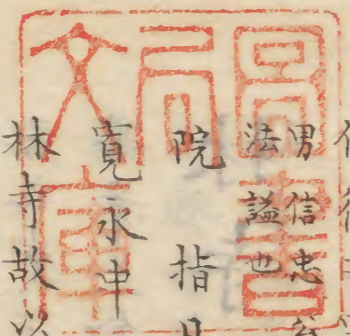 男信忠
法諡也
院指
寛永中
林寺故以
圖書
局
文庫